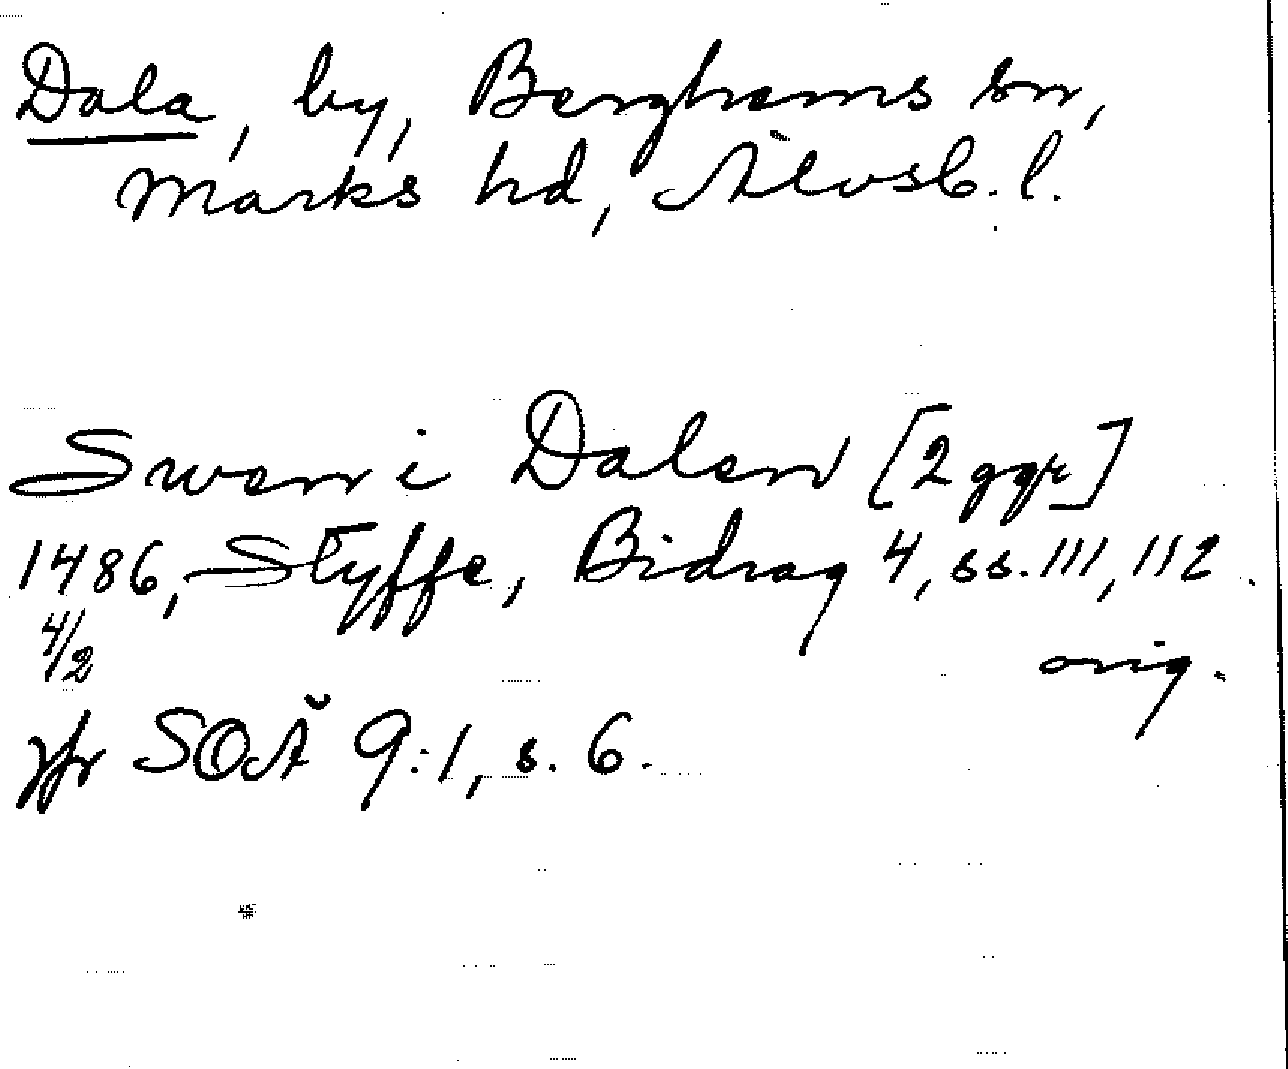 Dala, by, Berghems sn,
Marks hd, Älvsb. l.
Swen i Dalen [2 ggr]
1486, Styffe, Bidrag 4, ss. 111, 112.
4/2
orig.
jfr SOÄ 9:1, s. 6.